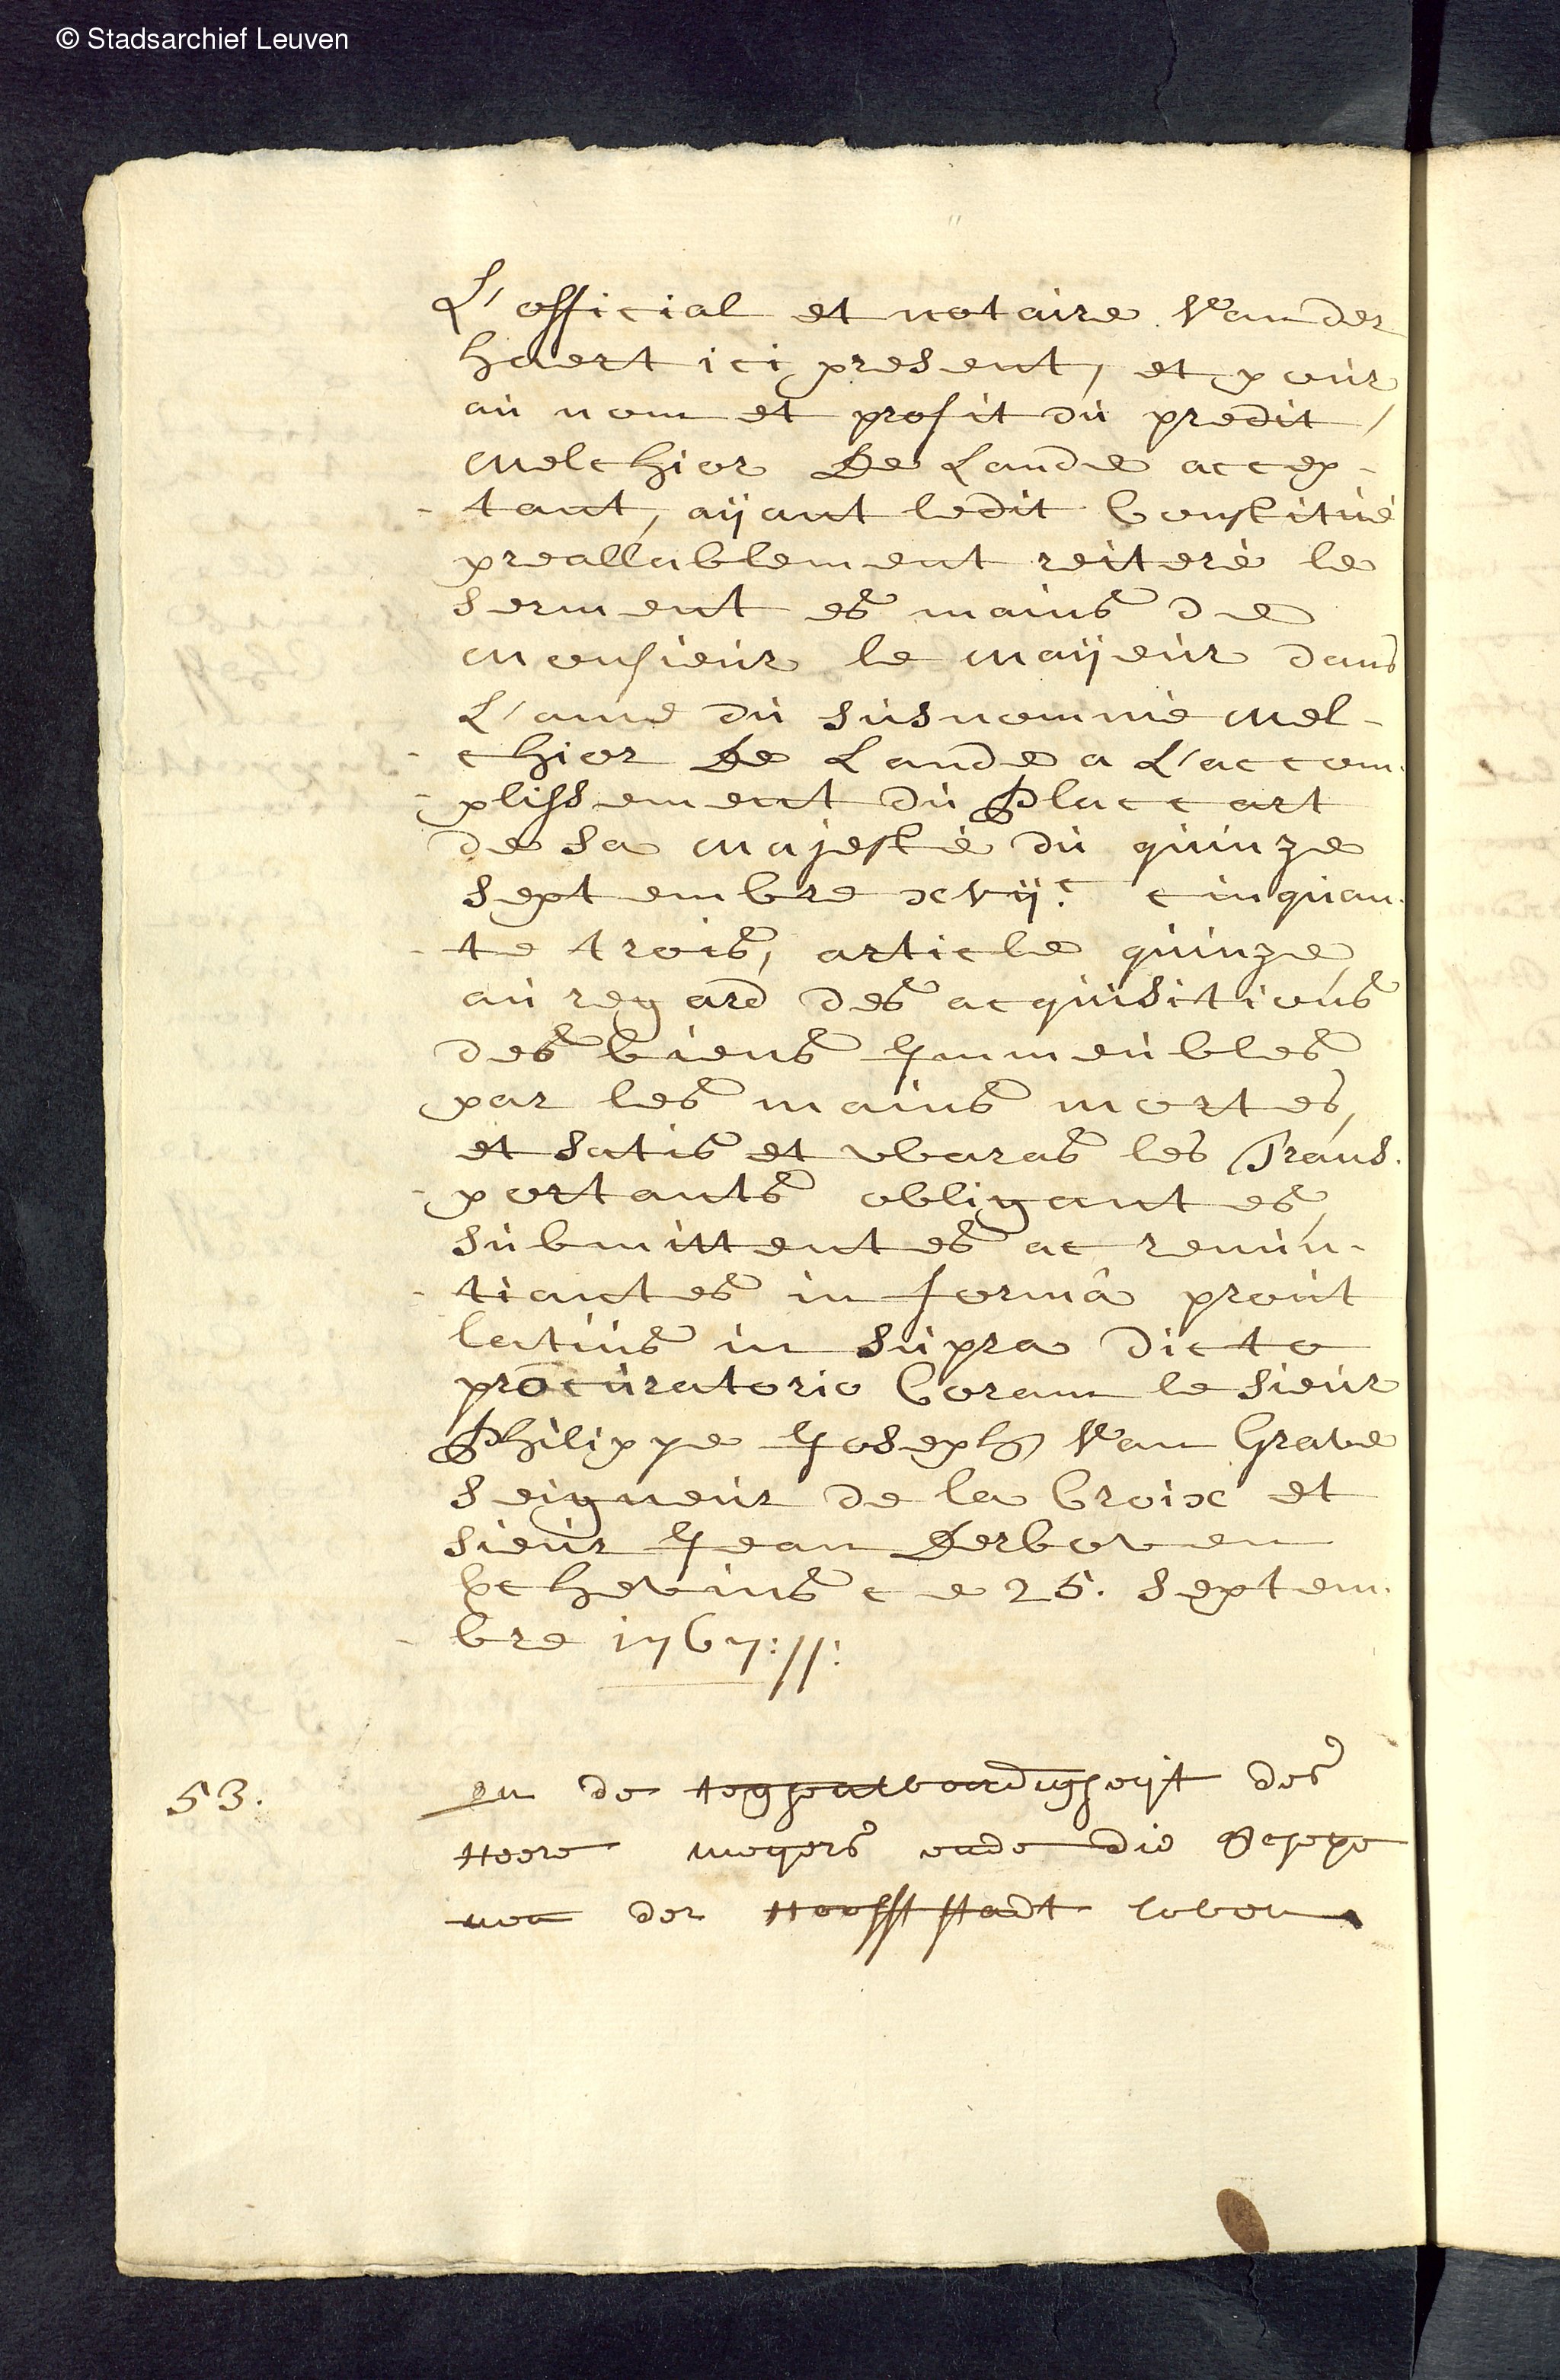 © Stadsarchief Leuven
L'official et notaire Vander
haert ici present, et pour
au nom et profit du predit
Melchior De Lande accep-
-tant, aÿant ledit Constitué
preallablement reiteré le
serment es mains de
Monsieur le Maÿeur dans
L'ame du susnommé Mel-
-chior De Lande a L'accom-
-plissement du Placcart
de sa Majesté du quinze
septembre xvijc. cinquan-
-te trois, article quinze
au regard des acquisitions
des biens Immeubles
par les mains mortes,
et satis et waras les Trans-
-portants obligantes,
submittentes ac renun-
-tiantes in formâ prout
latius in supra dicto
procuratorio Coram le sieur
Philippe Joseph Van Grave
seigneur de la Croix et
sieur Jean Derboven
Echevins ce 25. septem-
-bre 1767://:
53.
In de tegenwoordigheÿt des
Heere meyers ende die Schepe
nen der Hooftstadt loven